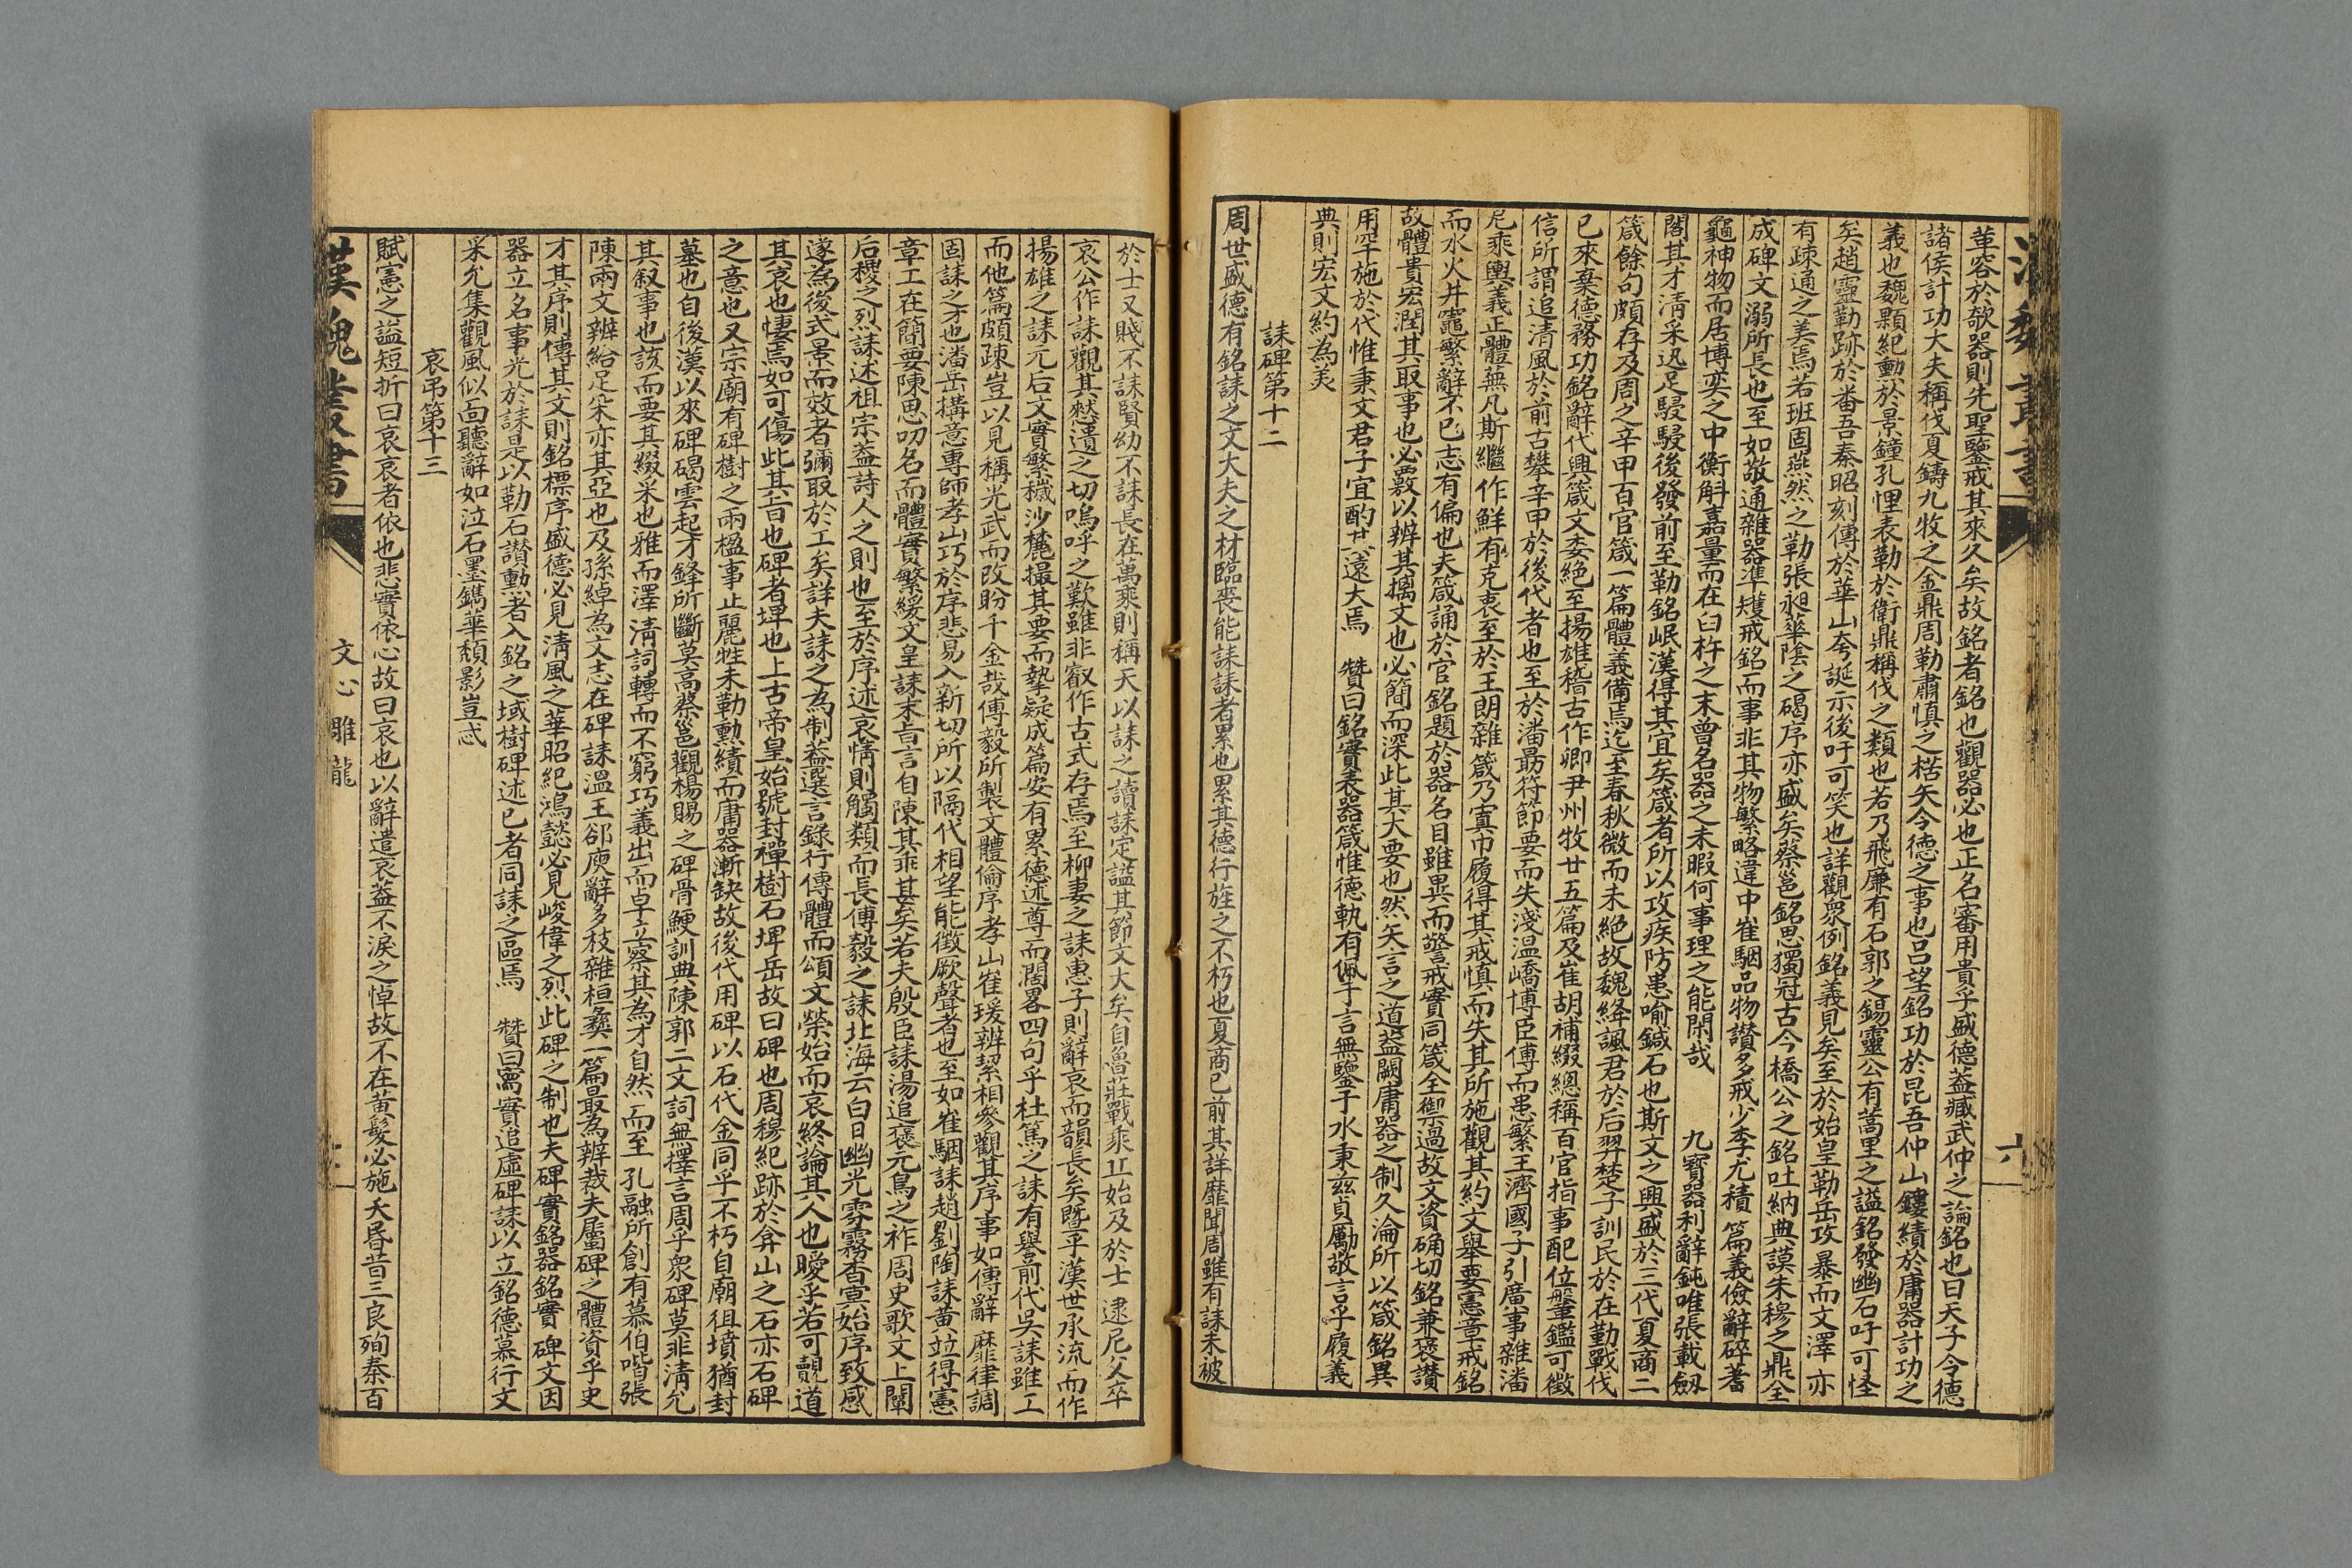 漢魏叢書
六
革容於欹器則先聖鑒戒其來久矣故銘者銘也觀器必也正名審用貴乎盛德葢臧武仲之論銘也曰天子令德
諸侯計功大夫稱伐夏鑄九牧之金鼎周勒肅慎之楛矢令德之事也呂望銘功於昆吾仲山鏤績於庸器計功之
義也魏顆紀勳於景鐘孔悝表勒於衛鼎稱伐之類也若乃飛廉有石郭之錫靈公有蒿里之謚銘發幽石吁可怪
矣趙靈勒跡於番吾秦昭刻傳於華山夸誕示後吁可笑也詳觀衆例銘義見矣至於始皇勒岳攻暴而文澤亦
有疎通之美焉若班固燕然之勒張昶華陰之碣序亦盛矣蔡邕銘思獨冠古今橋公之銘吐納典謨朱穆之鼎全
成碑文溺所長也至如敬通雜器準矱戒銘而事非其物繁略違中崔駰品物讃多戒少李尤積篇義儉辭碎蓍
龜神物而居博奕之中衡斛嘉量而在臼杵之末曾名器之未暇何事理之能閑哉 九寳器利辭鈍唯張載劔
閣其才淸采迅足駸駸後發前至勒銘岷漢得其宜矣箴者所以攻疾防患喻鍼石也斯文之興盛於三代夏商二
箴餘句頗存及周之辛甲百官箴一篇體義備焉迄至春秋微而未絕故魏絳諷君於后羿楚子訓民於在勤戰伐
已來棄德務功銘辭代興箴文委絕至揚雄稽古作卿尹州牧廿五篇及崔胡補綴總稱百官指事配位鞶鑑可徵
信所謂追清風於前古攀辛甲於後代者也至於潘勗符節要而失淺温嶠博臣傅而患繁王濟國子引廣事雜潘
尼乘輿義正體蕪凡斯繼作鮮有克衷至於王朗雜箴乃寘巾履得其戒慎而失其所施觀其約文舉要憲章戒銘
而水火井竈繁辭不已志有偏也夫箴誦於官銘題於器名目雖異而警戒實同箴全禦過故文資确切銘兼褒讃
故體貴宏潤其取事也必覈以辨其摛文也必簡而深此其大要也然矢言之道葢闕庸器之制久淪所以箴銘異
用罕施於代惟秉文君子宜酌其遠大焉 贊曰銘實表器箴惟德軌有佩于言無鑒于水秉兹貞厲敬言乎履義
典則宏文約為美
誄碑第十二
周世盛德有銘誄之文大夫之材臨喪能誄誄者累也累其德行旌之不朽也夏商已前其詳靡聞周雖有誄未被
於士又賤不誄賢幼不誄長在萬乘則稱天以誄之讀誄定謚其節文大矣自魯莊戰乘丘始及於士逮尼父卒
哀公作誄觀其憖遺之切嗚呼之歎雖非叡作古式存焉至柳妻之誄惠子則辭哀而韻長矣曁乎漢世承流而作
揚雄之誄元后文實繁穢沙麓撮其要而摯疑成篇安有累德述尊而闊畧四句乎杜篤之誄有譽前代吳誄雖工
而他篇頗疎豈以見稱光武而改盼千金哉傅毅所製文體倫序孝山崔瑗辨絜相參觀其序事如傳辭靡律調
固誄之才也潘岳搆意專師孝山巧於序悲易入新切所以隔代相望能徵厥聲者也至如崔駰誄趙劉陶誄黃竝得憲
章工在簡要陳思叨名而體實繁緩文皇誄末旨言自陳其乖甚矣若夫殷臣誄湯追褒元鳥之祚周史歌文上闡
后稷之烈誄述祖宗葢詩人之則也至於序述哀情則觸類而長傅毅之誄北海云白日幽光雰霧杳冥始序致感
遂為後式景而效者彌取於工矣詳夫誄之為制葢選言錄行傳體而頌文榮始而哀終論其人也曖乎若可覿道
其哀也悽焉如可傷此其旨也碑者埤也上古帝皇始號封禪樹石埤岳故曰碑也周穆紀跡於弇山之石亦石碑
之意也又宗廟有碑樹之兩楹事止麗牲未勒勲績而庸器漸缺故後代用碑以石代金同乎不朽自廟徂墳猶封
墓也自後漢以來碑碣雲起才鋒所斷莫高蔡邕觀楊賜之碑骨鯁訓典陳郭二文詞無擇言周乎衆碑莫非淸允
其叙事也該而要其綴采也雅而澤淸詞轉而不窮巧義出而卓立察其為才自然而至孔融所創有慕伯喈張
陳兩文辨給足采亦其亞也及孫綽為文志在碑誄溫王郤庾辭多枝雜桓彝一篇最為辨裁夫屬碑之體資乎史
才其序則傳其文則銘標序盛德必見淸風之華昭紀鴻懿必見峻偉之烈此碑之制也夫碑實銘器銘實碑文因
器立名事光於誄是以勒石讃勳者入銘之域樹碑述已者同誄之區焉 贊曰寫實追虛碑誄以立銘德慕行文
采允集觀風似面聽辭如泣石墨鐫華頹影豈忒
哀弔第十三
賦憲之謚短折曰哀哀者依也悲實依心故曰哀也以辭遣哀葢不淚之悼故不在黃髮必施夭昬昔三良殉秦百
漢魏叢書
文心雕龍